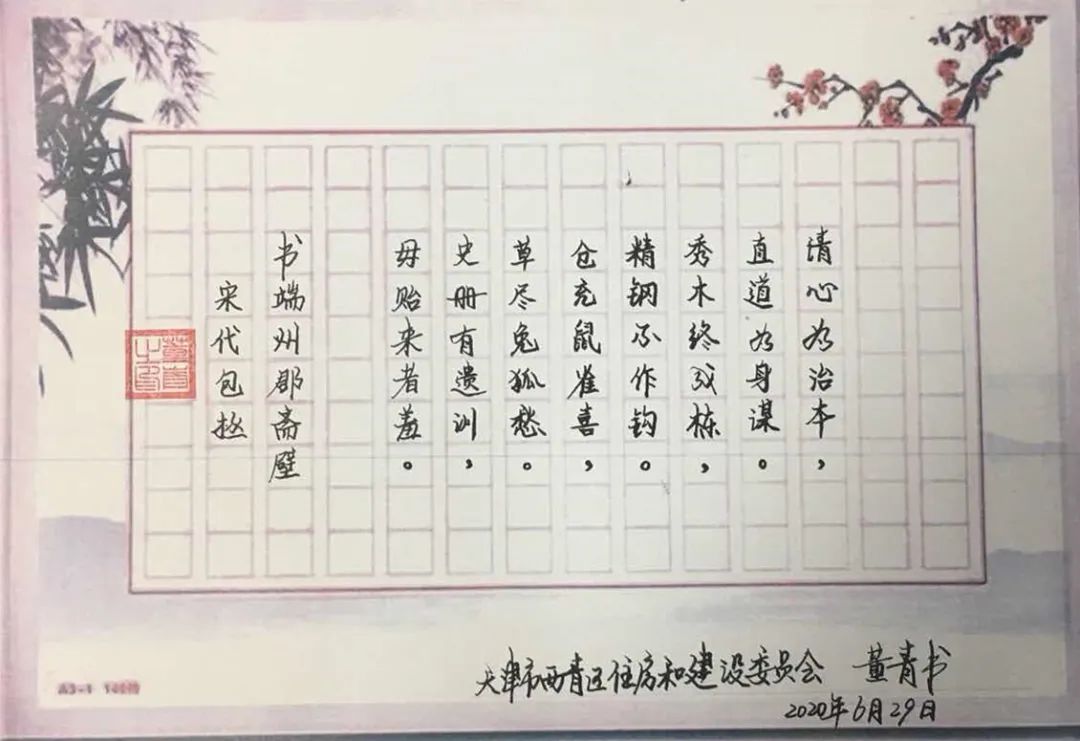 清心为治本，
直道为身谋。
秀木终成栋，
精钢不作钩。
仓充鼠雀喜，
草尽兔狐愁。
史册有遗训，
毋贻来者羞。
书端州郡斋壁
宋代包拯
天津市西青区住房和建设委员会 董青书
2020年6月29日